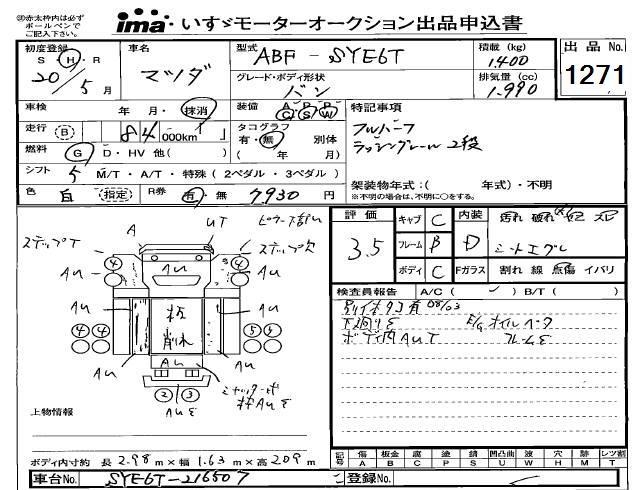 ※赤太枠内は必ず
ボールペンで
ご記入下さい。
ima いすゞモーターオークション出品申込書
初度登録 S・H・R 20年 5月
車名 マツダ
型式 ABF-SYE6T
積載(kg) 1,400
出品 No. 1271
グレード・ボディ形状 バン
排気量(cc) 1,990
車検 年 月・抹消
装備 AC PS PW
特記事項
走行 B 84,000km
タコグラフ 有・無 別体
( 年 月)
フルハーフ
ラッシングレール2段
燃料 G D・HV 他( )
シフト 5 M/T・A/T・特殊(2ペダル・3ペダル)
架装物年式:( 年式)・不明
※不明の場合は、不明に○をする。
色 白 指定 R券 有・無 7930 円
評価 3.5
キャブ C
フレーム B
ボディ C
内装 D
汚れ 破れ コゲ スレ
シートエグレ
Fガラス 割れ 線 点傷 イバリ
検査員報告 A/C( ✓ ) B/T( )
下廻りE E/Gオイル
ボディ内AUT フレームE
A UT
ステップT
ステップ欠
④ AU AU ④ AU
AU AU
④④ 板 削休 ⑤⑤
AU AU AU
② ③
AUE
枠AUE
上物情報
ボディ内寸約 長 2.98 m × 幅 1.63 m × 高 209 m
記号 傷 A 板金 B 腐 C 塗 P 錆 S 凹凸曲 U 波 W 穴 H 跡 M レツ割 T
車台No. SYE6T-216507 登録No.